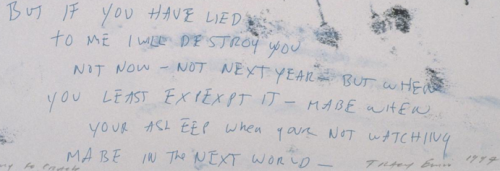 BUT IF YOU HAVE LIED
TO ME I WILL DESTROY YOU
NOT NOW – NOT NEXT YEAR – BUT WHEN
YOU LEAST EXPEXPT IT – MABE WHEN
YOUR ASLEEP When your NOT WATCHING
MABE IN THE NEXT WORLD –
Tracey Emin 1994